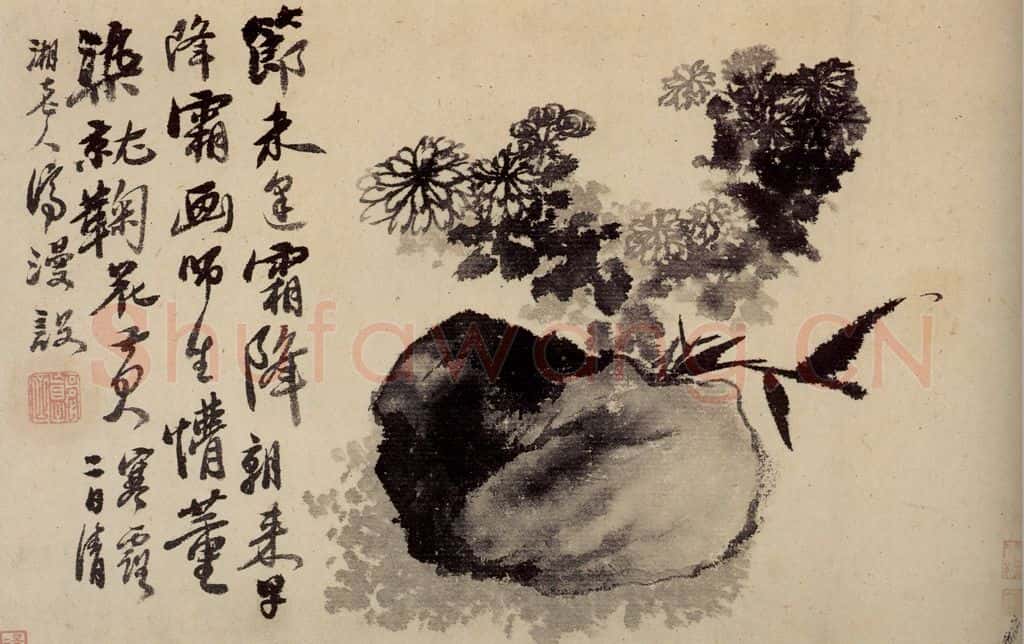 節未逢霜降朝来早
降霜画师生懵董
染就鞠花黄 寒露
二日清
湘老人濟漫設
Shufawang.CN